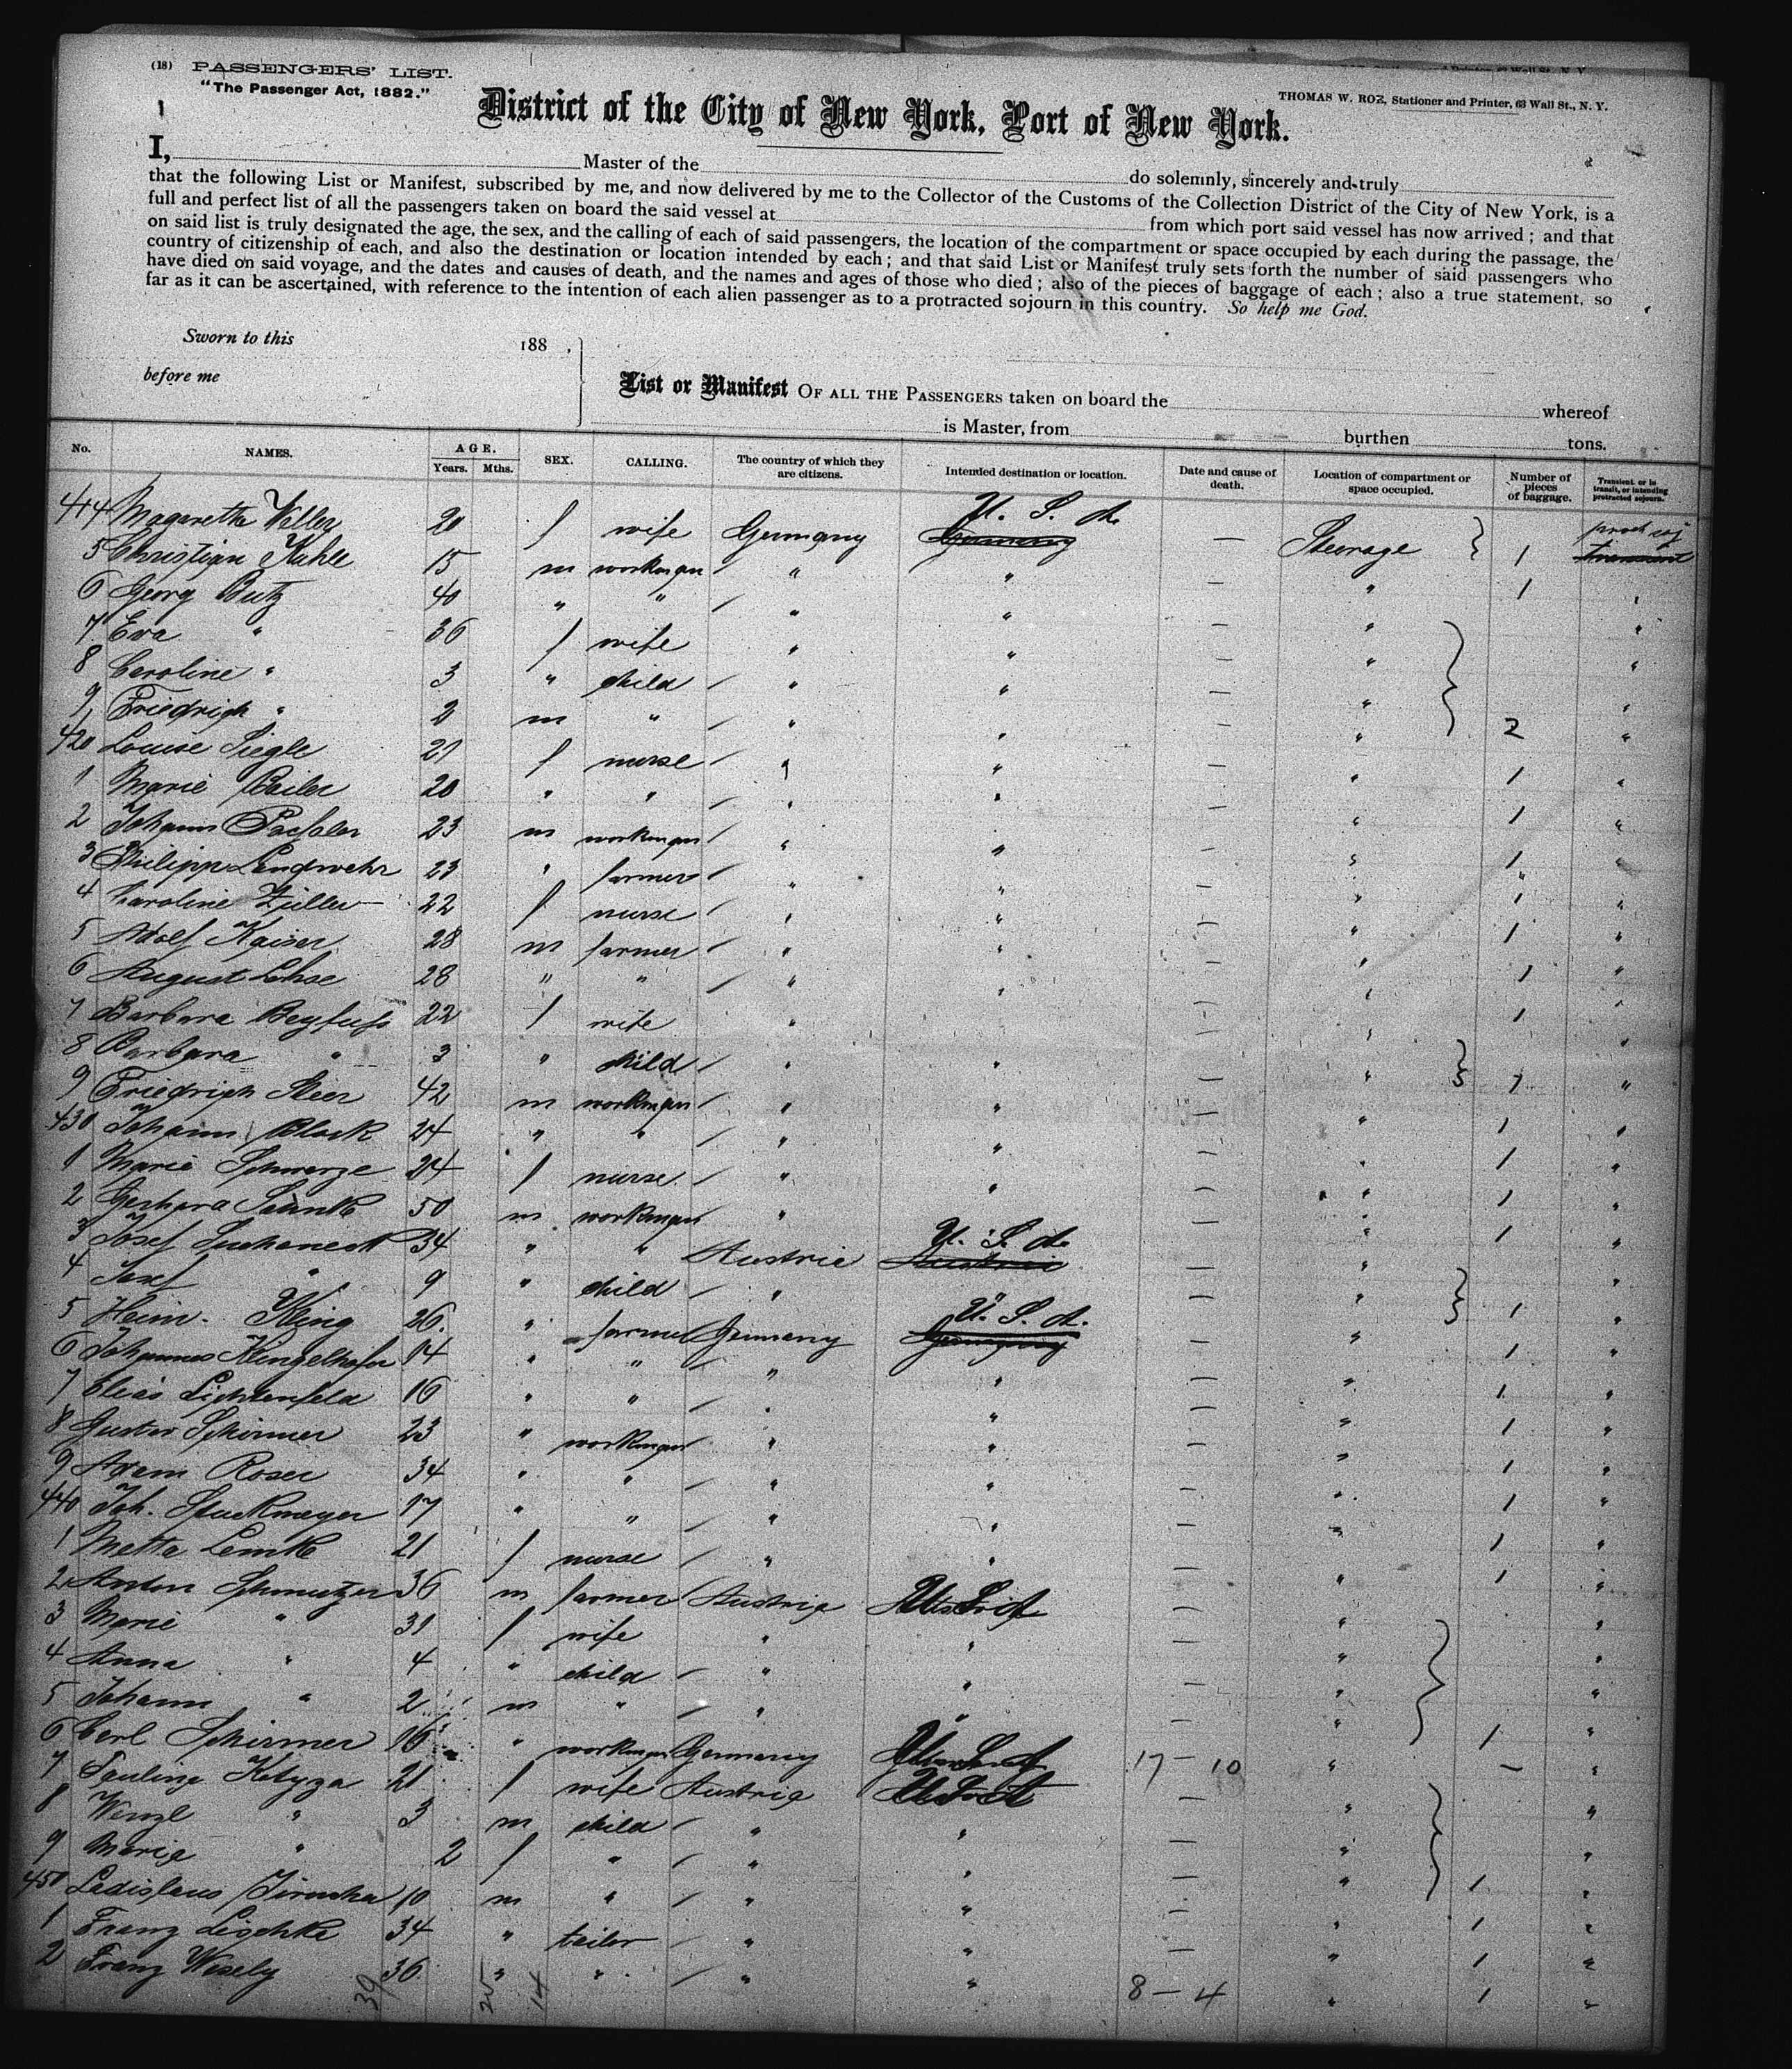 (18) PASSENGERS' LIST.
"The Passenger Act, 1882."
THOMAS W. ROZ, Stationer and Printer, 63 Wall St., N. Y.
District of the City of New York, Port of New York.
I, Master of the do solemnly, sincerely and truly
that the following List or Manifest, subscribed by me, and now delivered by me to the Collector of the Customs of the Collection District of the City of New York, is a
full and perfect list of all the passengers taken on board the said vessel at from which port said vessel has now arrived; and that
on said list is truly designated the age, the sex, and the calling of each of said passengers, the location of the compartment or space occupied by each during the passage, the
country of citizenship of each, and also the destination or location intended by each; and that said List or Manifest truly sets forth the number of said passengers who
have died on said voyage, and the dates and causes of death, and the names and ages of those who died; also of the pieces of baggage of each; also a true statement, so
far as it can be ascertained, with reference to the intention of each alien passenger as to a protracted sojourn in this country. So help me God.
Sworn to this 188 .
before me
List or Manifest OF ALL THE PASSENGERS taken on board the whereof
is Master, from burthen tons.
No. NAMES. AGE. Years. Mths. SEX. CALLING. The country of which they are citizens. Intended destination or location. Date and cause of death. Location of compartment or space occupied. Number of pieces of baggage. Transient or in transit, or intending protracted sojourn.
414 Magaretha 20 f wife Germany U. S. A. — Steerage 1
5 Christian Kuhle 15 m workman " " — " 1 "
6 Georg Butz 40 " " " " — " "
7 Eva " 36 f wife " " — " "
8 Caroline " 3 " child " " — " "
9 Friedrich " 2 m " " " — " 2 "
420 Louise Siegle 21 f nurse " " — " 1 "
1 Marie 20 " " " " — " 1 "
2 Johann 23 m workman " " — " 1 "
3 Philipp Landwehr 23 " farmer " " — " 1 "
4 Caroline Züller 22 f nurse " " — " 1 "
5 Adolf Kaiser 28 m farmer " " — " 1 "
6 August Lohse 28 " " " " — " 1 "
7 Barbara Beyfuss 22 f wife " " — " "
8 Barbara " 3 " child " " — " 1 "
9 Friedrich 42 m workman " " — " 1 "
430 Johann Block 24 " " " " — " 1 "
1 Marie Schwarze 24 f nurse " " — " 1 "
2 Gerhard 50 m workman " " — " 1 "
3 Josef Suchaneck 34 " " Austria U. S. A. — " "
4 Josef " 9 " child " " — " 1 "
5 Heinr. Kling 26 " farmer Germany U. S. A. — " 1 "
6 Johannes Klingelhofer 14 " " " " — " 1 "
7 Elias Lichtenfeld 16 " " " " — " 1 "
8 Gustav Schirmer 23 " workman " " — " 1 "
9 Adam Roser 34 " " " " — " 1 "
440 Joh. Stuckmeyer 17 " " " " — " 1 "
1 Metta Lemke 21 f nurse " " — " 1 "
2 Anton Schmutzer 36 m farmer Austria — " "
3 Marie " 31 f wife " " — " "
4 Anna " 4 " child " " — " "
5 Johann " 2 m " " " — " 1 "
6 Carl Schirmer 16 " workman Germany 17 — 10 " — "
7 Paulina Kotyza 21 f wife Austria — " "
8 Wenzl " 3 m child " " — " "
9 Maria " 2 f " " " — " 1 "
450 Ladislaus 10 m " " " — " 1 "
1 Franz Lischka 34 " tailor " " — " 1 "
2 Franz Wesely 36 " " " " 8 — 4 " 1 "
39 25 14